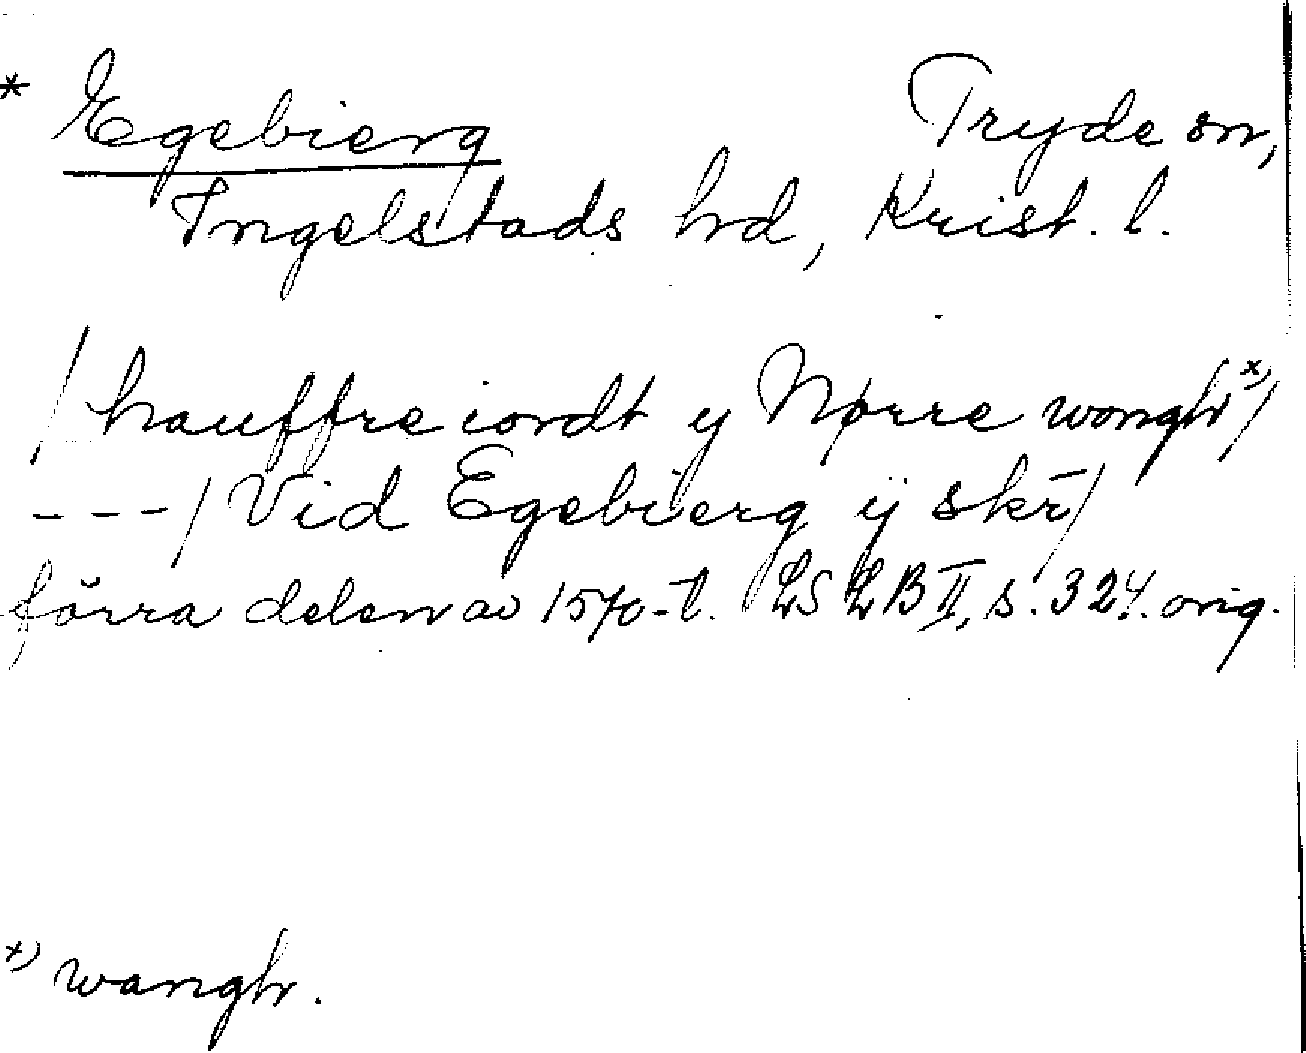 * Egebierg Tryde sn,
Ingelstads hd, Krist. l.
/ hauffre iordt y Nørre wongh x)/
---/ Vid Egebierg ÿ skr̄/
förra delen av 1570-t. LSLB II, s. 324. orig.
x) wangh.